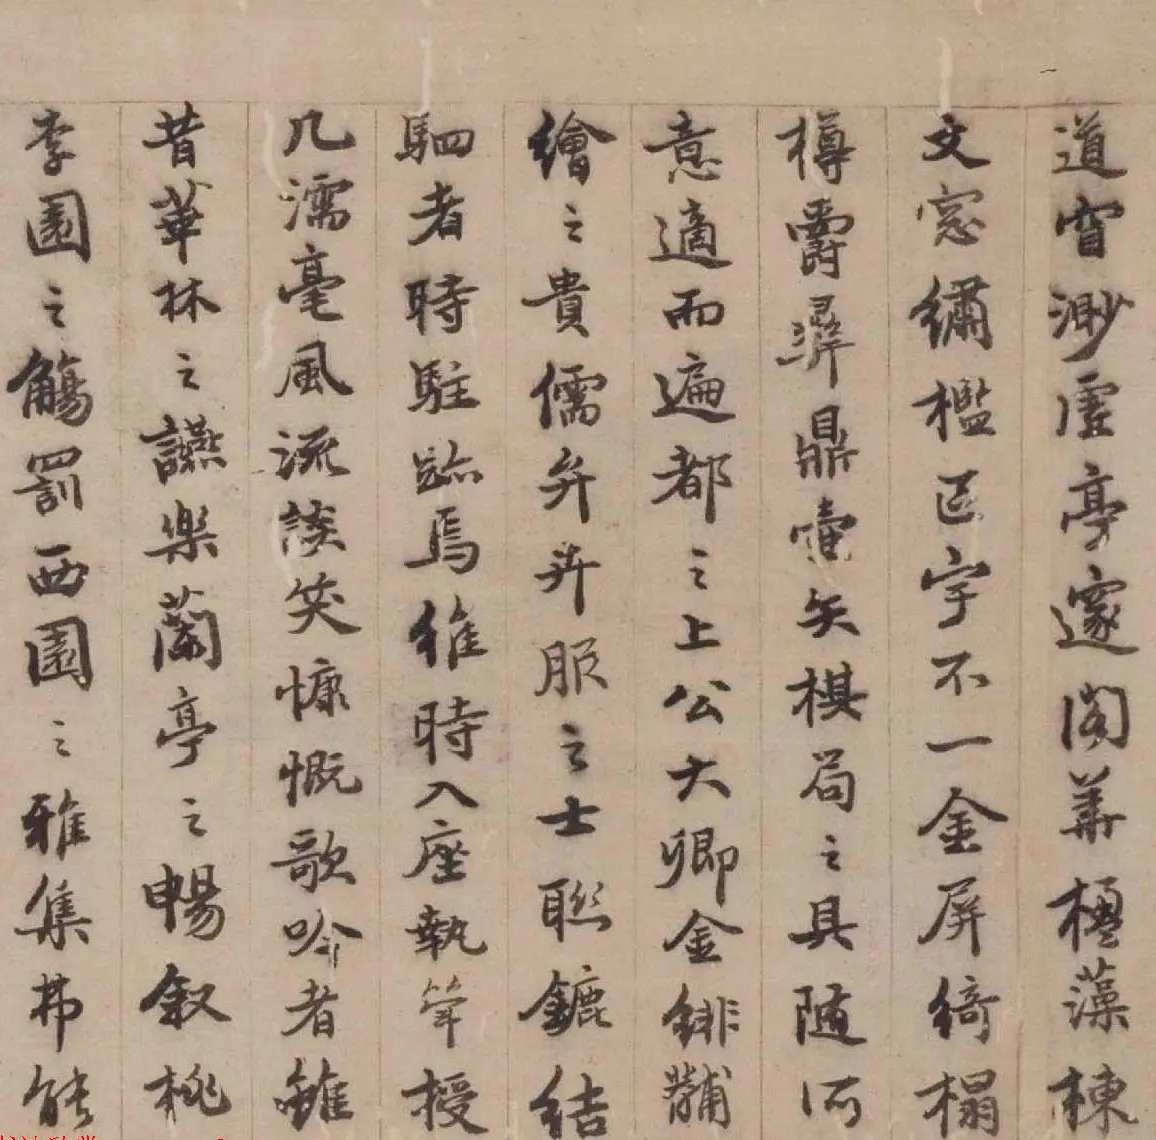 道窅渺虛亭邃閣華櫨藻棟
文窓繡檻区宇不一金屏綺榻
樽爵彛鼎壷矢棋局之具随所
意適而遍都之上公大卿金緋黼
繪之貴儒弁卉服之士聡鑣結
駟者時駐跡焉維時入座執筆授
几濡毫風流談笑慷慨歌吟者雖
昔華林之讌樂蘭亭之暢叙桃
李園之觴罰西園之雅集弗能